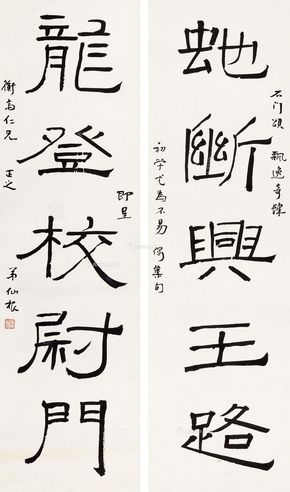 虵斷興王路
石门頌 飘逸奇諱
初学尤為不易 偶集句
即呈
龍登校尉門
衡高仁兄 正之
弟仙根